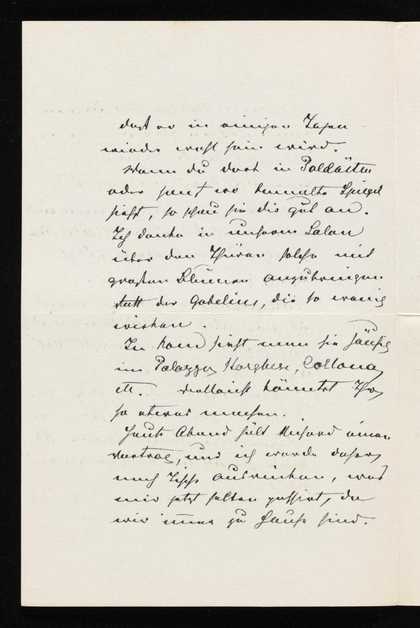 daß er in einigen Tagen
wieder wohl sein wird.
Wenn du dort in Palästen
oder sonst wo bemalte Spiegel
siehst, so schau sie dir gut an.
Ich denke in unserem Salon
über den Thüren solche mit
großen Blumen anzubringen
statt der Gobelins, die so wenig
wirken.
In Rom sieht man sie häufig
im Palazzo Borghese, Collona,
etc. vielleicht könntet Ihr
so etwas machen.
Heute Abend hält Richard einen
Vortrag, und ich werde daher
nach Tisch ausrücken, was
mir jetzt selten passirt, da
wir immer zu Hause sind.